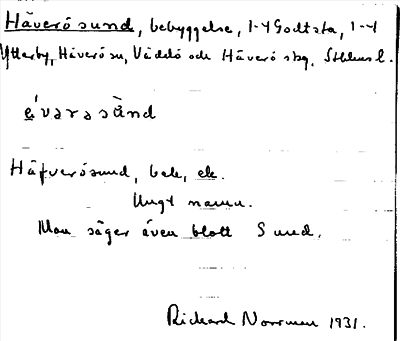 Häverösund, bebyggelse, 1-4 Godtsta, 1-4
Ytterby, Häverösu, Väddö och Häverö skg, Sthlms l.
Häfverösund, beb, ek.
Ungt namn.
Man säger även blott Sund.
Richard Norrman 1931.